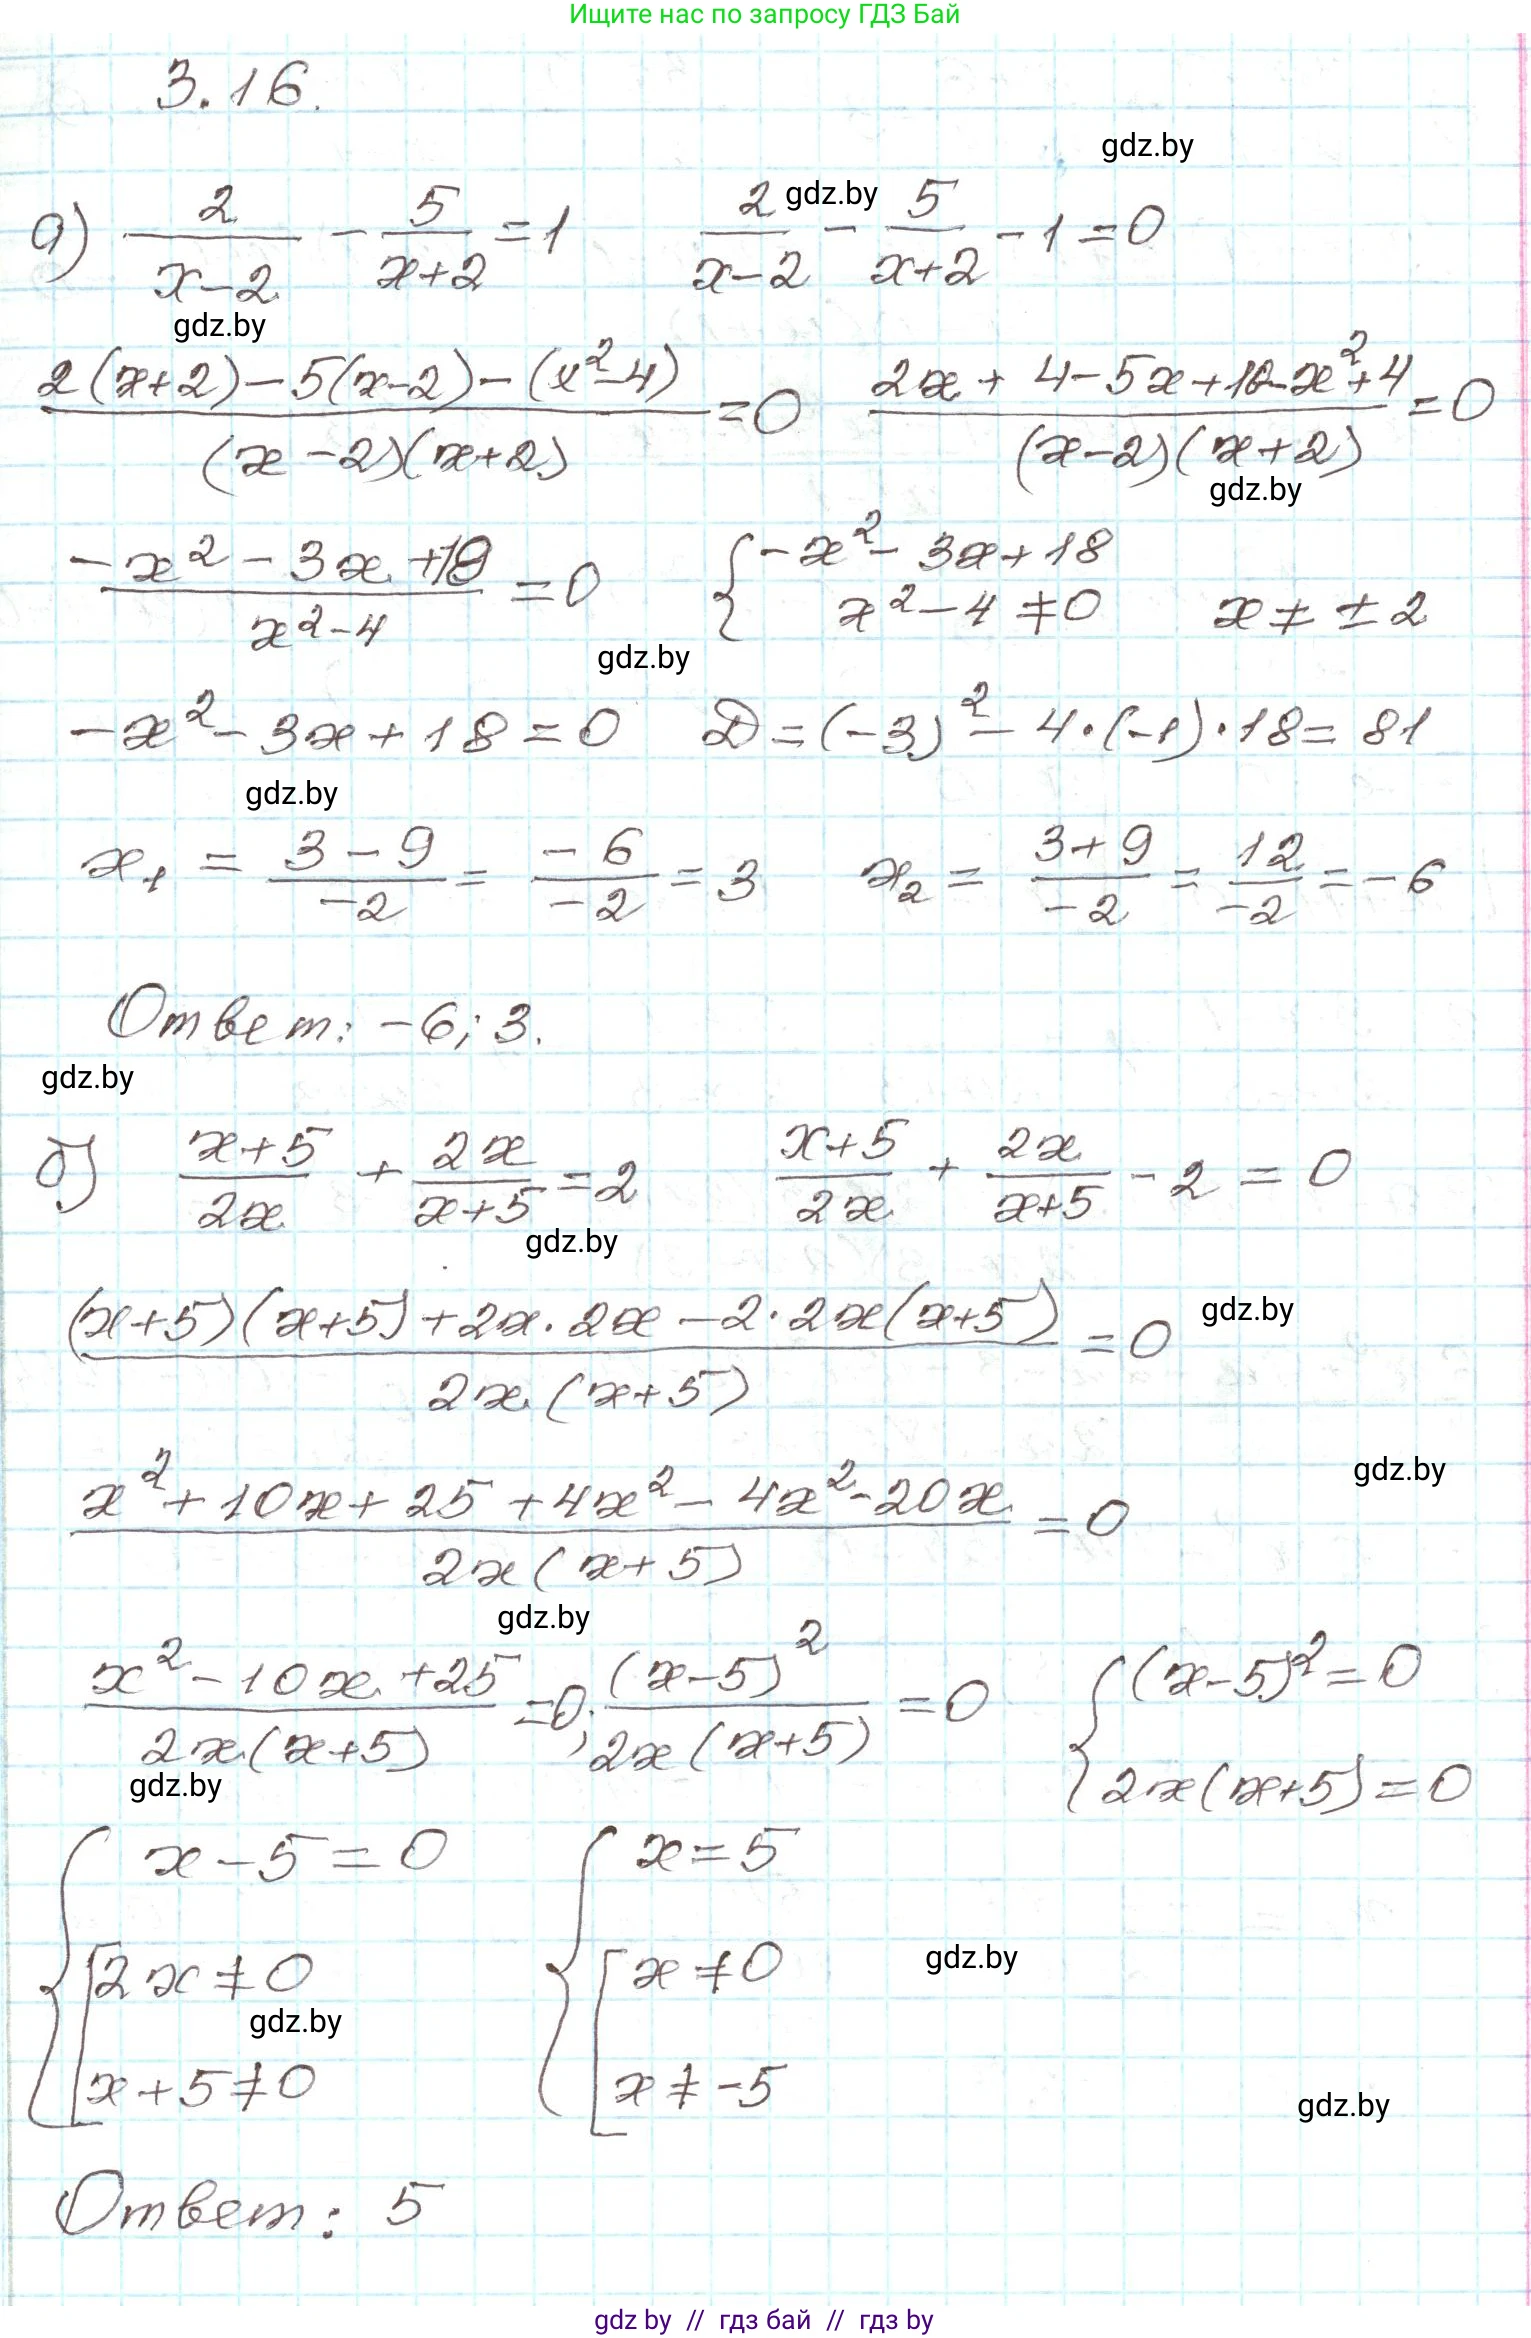 Ищите нас по запросу ГДЗ Бай
3.16.
gdz.by
а) 2/(x-2) - 5/(x+2) = 1   2/(x-2) - 5/(x+2) - 1 = 0
gdz.by
gdz.by
(2(x+2) - 5(x-2) - (x²-4))/((x-2)(x+2)) = 0   (2x + 4 - 5x + 10 - x² + 4)/((x-2)(x+2)) = 0
gdz.by
(-x² - 3x + 18)/(x²-4) = 0   { -x² - 3x + 18
x² - 4 ≠ 0   x ≠ ± 2
gdz.by
-x² - 3x + 18 = 0   D = (-3)² - 4·(-1)·18 = 81
gdz.by
x₁ = (3-9)/(-2) = (-6)/(-2) = 3   x₂ = (3+9)/(-2) = 12/(-2) = -6
Ответ: -6; 3.
gdz.by
б) (x+5)/(2x) + 2x/(x+5) = 2   (x+5)/(2x) + 2x/(x+5) - 2 = 0
gdz.by
((x+5)(x+5) + 2x·2x - 2·2x(x+5))/(2x(x+5)) = 0
gdz.by
(x² + 10x + 25 + 4x² - 4x² - 20x)/(2x(x+5)) = 0
gdz.by
gdz.by
(x² - 10x + 25)/(2x(x+5)) = 0; (x-5)²/(2x(x+5)) = 0   { (x-5)² = 0
2x(x+5) = 0
gdz.by
{ x - 5 = 0   { x = 5
[ 2x ≠ 0   [ x ≠ 0
gdz.by
gdz.by
x + 5 ≠ 0   x ≠ -5
gdz.by
Ответ: 5
gdz by // гдз бай // гдз by